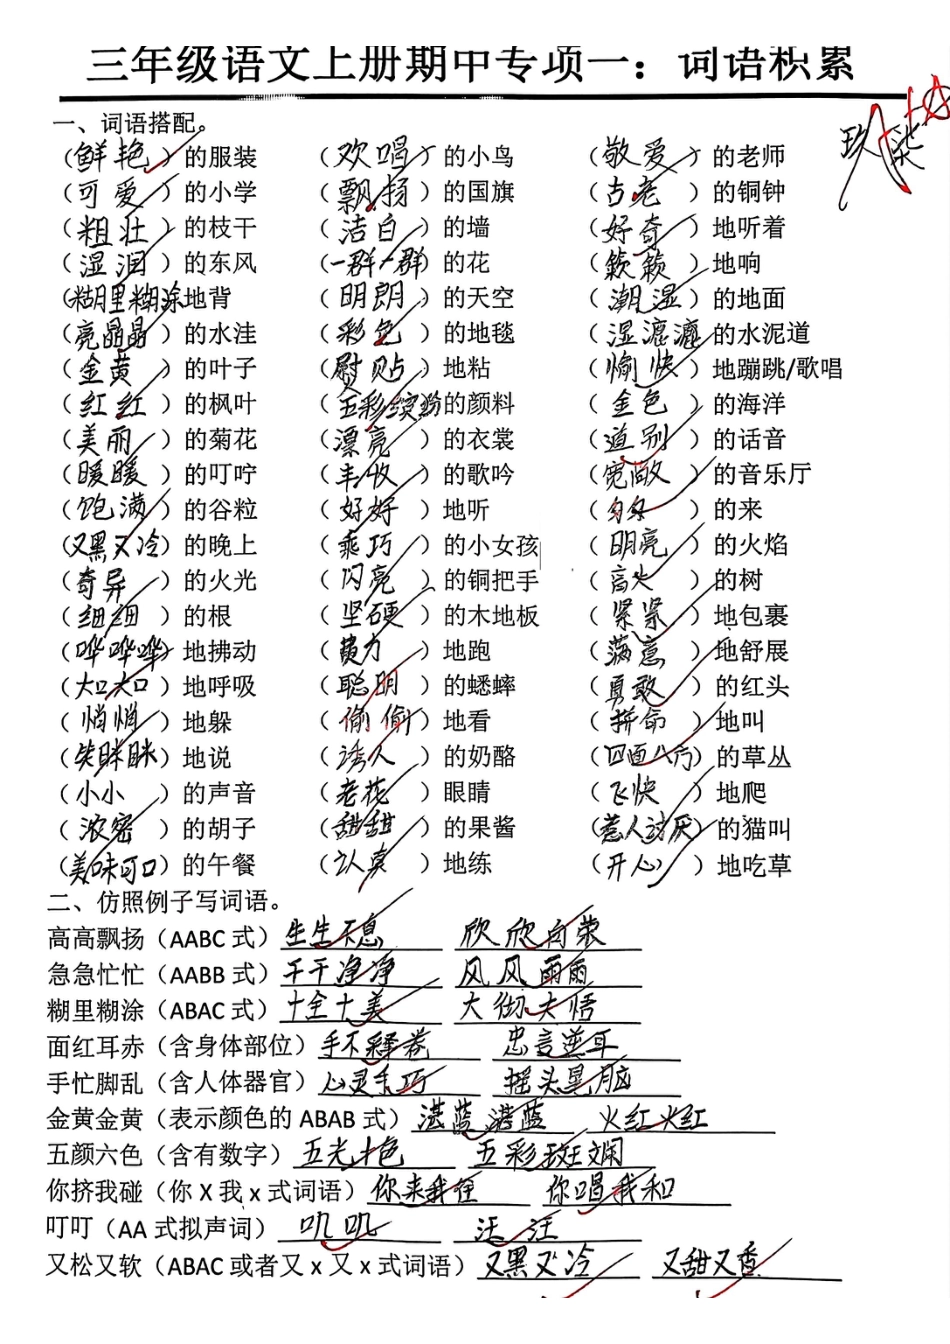 三年级语文上册期中专项一：词语积累
玖柒
一、词语搭配。
（鲜艳）的服装 （欢唱）的小鸟 （敬爱）的老师
（可爱）的小学 （飘扬）的国旗 （古老）的铜钟
（粗壮）的枝干 （洁白）的墙 （好奇）地听着
（湿润）的东风 （一群一群）的花 （簌簌）地响
（糊里糊涂）地背 （明朗）的天空 （潮湿）的地面
（亮晶晶）的水洼 （彩色）的地毯 （湿漉漉）的水泥道
（金黄）的叶子 （熨贴）地粘 （愉快）地蹦跳/歌唱
（红红）的枫叶 （五彩缤纷）的颜料 （金色）的海洋
（美丽）的菊花 （漂亮）的衣裳 （道别）的话音
（暖暖）的叮咛 （丰收）的歌吟 （宽敞）的音乐厅
（饱满）的谷粒 （好好）地听 （匆匆）的来
（又黑又冷）的晚上 （乖巧）的小女孩 （明亮）的火焰
（奇异）的火光 （闪亮）的铜把手 （高大）的树
（细细）的根 （坚硬）的木地板 （紧紧）地包裹
（哗哗哗）地拂动 （费力）地跑 （满意）地舒展
（大口大口）地呼吸 （聪明）的蟋蟀 （勇敢）的红头
（悄悄）地躲 （偷偷）地看 （拼命）地叫
（笑眯眯）地说 （诱人）的奶酪 （四面八方）的草丛
（小小）的声音 （老花）眼睛 （飞快）地爬
（浓密）的胡子 （甜甜）的果酱 （惹人讨厌）的猫叫
（美味可口）的午餐 （认真）地练 （开心）地吃草
二、仿照例子写词语。
高高飘扬（AABC 式）生生不息 欣欣向荣
急急忙忙（AABB 式）干干净净 风风雨雨
糊里糊涂（ABAC 式）十全十美 大彻大悟
面红耳赤（含身体部位）手不释卷 忠言逆耳
手忙脚乱（含人体器官）心灵手巧 摇头晃脑
金黄金黄（表示颜色的 ABAB 式）湛蓝湛蓝 火红火红
五颜六色（含有数字）五光十色 五彩斑斓
你挤我碰（你 X 我 x 式词语）你来我往 你唱我和
叮叮（AA 式拟声词） 叽叽 汪汪
又松又软（ABAC 或者又 x 又 x 式词语）又黑又冷 又甜又香